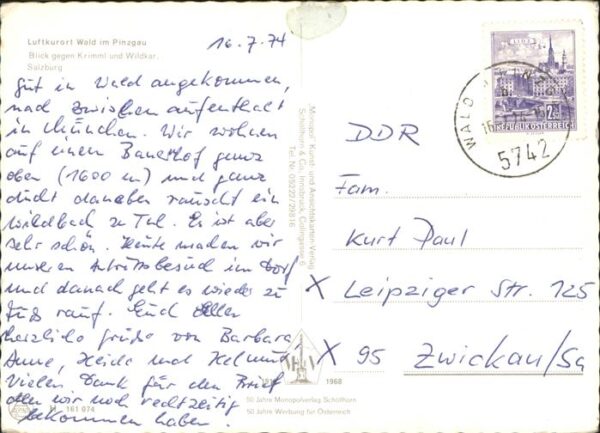 Luftkurort Wald im Pinzgau
Blick gegen Krimml und Wildkar.
Salzburg
16.7.74
Gut in Wald angekommen,
nach Zwischenaufenthalt
in München. Wir wohnen
auf einem Bauerhof ganz
oben (1600 m) und ganz
dicht daneben rauscht ein
Wildbach zu Tal. Es ist aber
sehr schön. Heute machen wir
unseren Antrittsbesuch im Dorf
und danach geht es wieder zu
Fuß rauf. Euch Allen
herzliche Grüße von Barbara,
Anne, Heide und Helmut
Vielen Dank für den Brief
den wir noch rechtzeitig
bekommen haben.
M 161 074
Monopol - Kunst- und Ansichtskarten-Verlag
Schöllhorn & Co., Innsbruck,
1968
50 Jahre Monopolverlag Schöllhorn
50 Jahre Werbung für Österreich
LINZ
2.50
REPUBLIK ÖSTERREICH
WALD
5742
DDR
Fam.
Kurt Paul
X Leipziger Str. 125
X 95 Zwickau/Sa